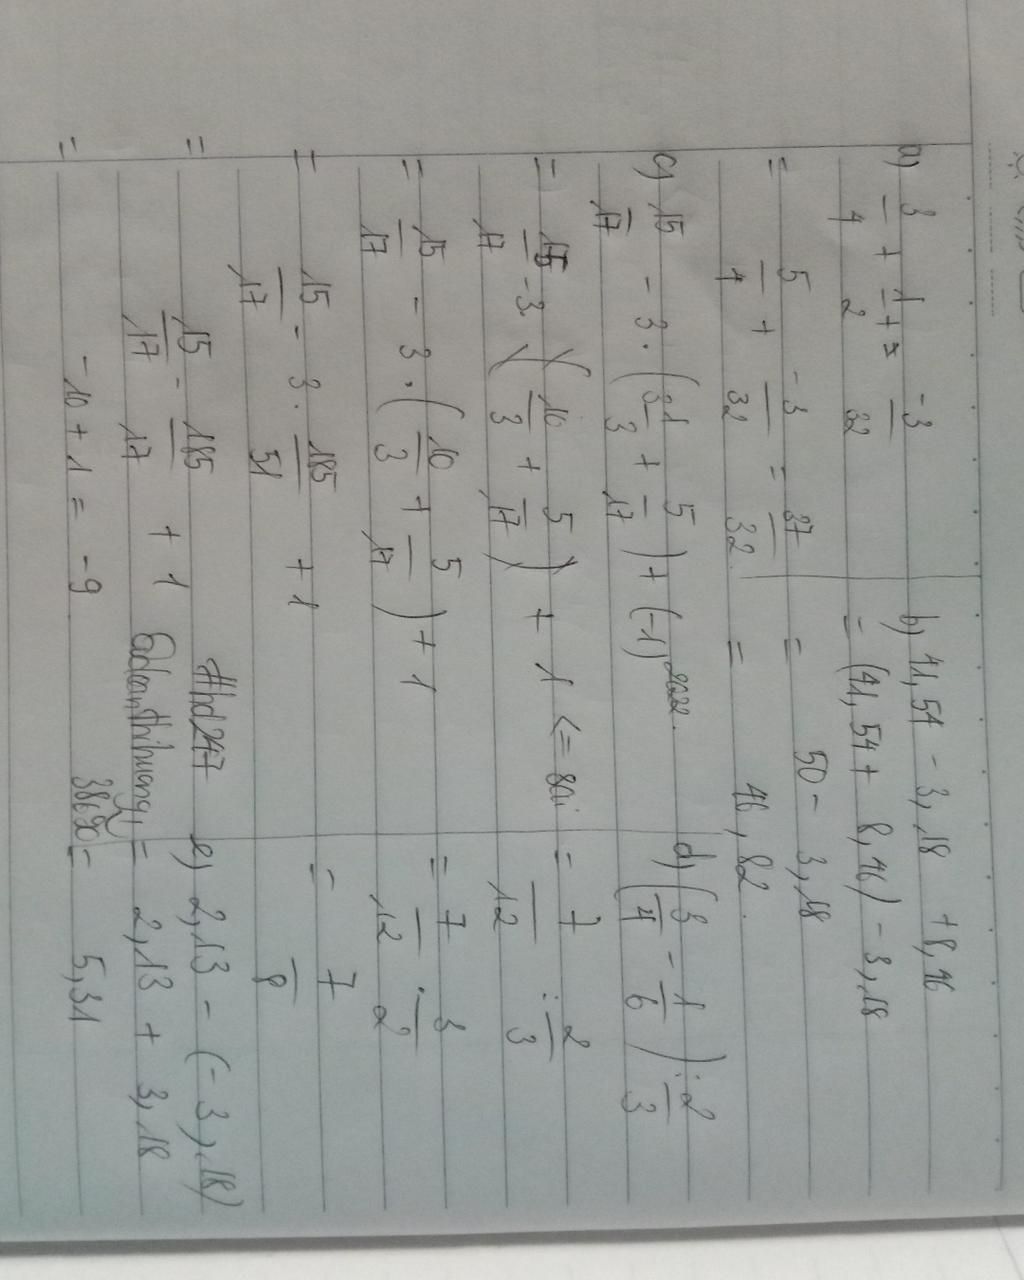 a) 3/4 + 1/2 + -3/32
= 5/4 + -3/32 = 37/32
b) 41,54 - 3,18 + 8,46
= (41,54 + 8,46) - 3,18
= 50 - 3,18
= 46,82
c) 15/17 - 3 . ( 1/3 + 5/17 ) + (-1)^2022
= 15/17 - 3 ( 10/3 + 5/17 ) + 1 <= sai
= 15/17 - 3 . ( 10/3 + 5/17 ) + 1
= 15/17 - 3 . 185/51 + 1
= 15/17 - 185/17 + 1
= -10 + 1 = -9
d) ( 3/4 - 1/6 ) : 2/3
= 7/12 : 2/3
= 7/12 . 3/2
= 7/8
#hd247
38690
e) 2,13 - (-3,18)
= 2,13 + 3,18
= 5,31